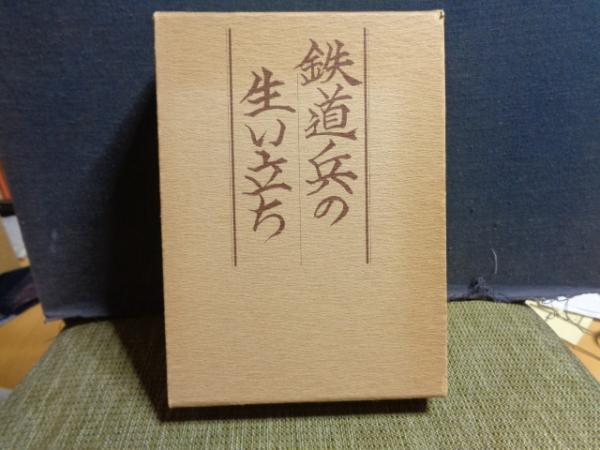 鉄道兵の
生い立ち